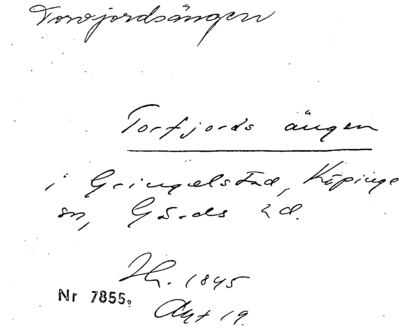 Torvjordsängen
Torfjords ängen
i Gringelstad, Köpinge
sn, Gärds hd.
Nr 7855.
1845
Akt 19.